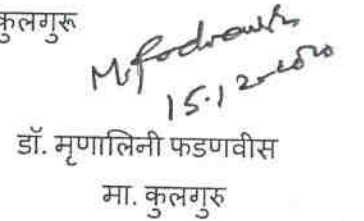 कुलगुरू
15.12.2020
डॉ. मृणालिनी फडणवीस
मा. कुलगुरु